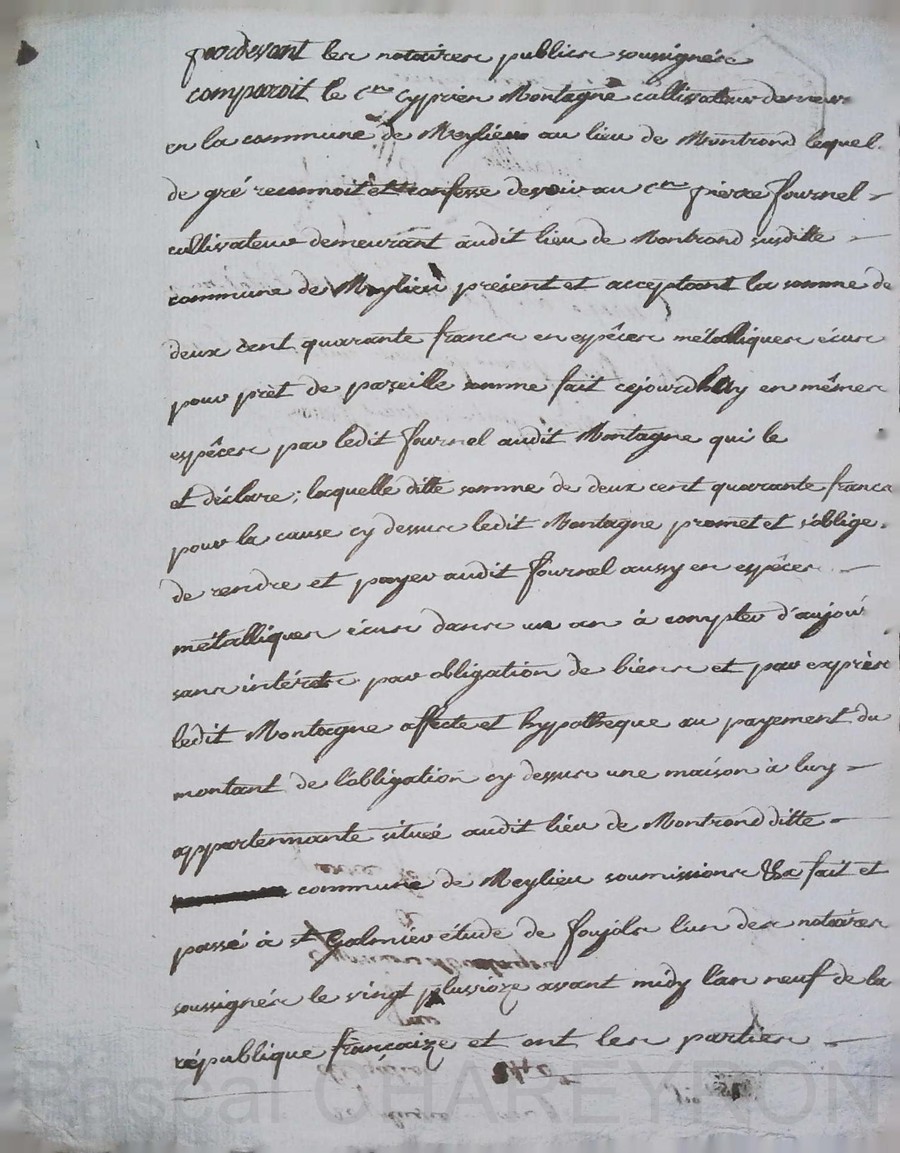 pardevant les notaires publics soussignés
comparoit le c.en Cyprien Montagne cultivateur demeur
en la commune de Meylieu au lieu de Montrond lequel
de gré reconnoit et confesse devoir au c.en pierre fournel
cultivateur demeurant audit lieu de Montrond susditte
commune de Meylieu présent et acceptant la somme de
deux cent quarante francs en espêces métalliques écus
pour prêt de pareille somme fait cejourdhuy en mêmes
espêces par ledit fournel audit Montagne qui le
et déclare; laquelle ditte somme de deux cent quarante francs
pour la cause cy dessus ledit Montagne promet et s'oblige
de rendre et payer audit fournel aussy en espêces
métalliques écus dans un an à compter d'aujou
sans intérets par obligation de biens et par exprès
ledit Montagne affecte et hypothèque au payement du
montant de l'obligation cy dessus une maison à luy
appartennante située audit lieu de Montrond ditte
commune de Meylieu soumissions &a fait et
passé à st Galmier étude de foujols l'un des notaires
soussignés le vingt pluvioze avant midy l'an neuf de la
république françaize et ont les parties
Pascal CHAREYRON